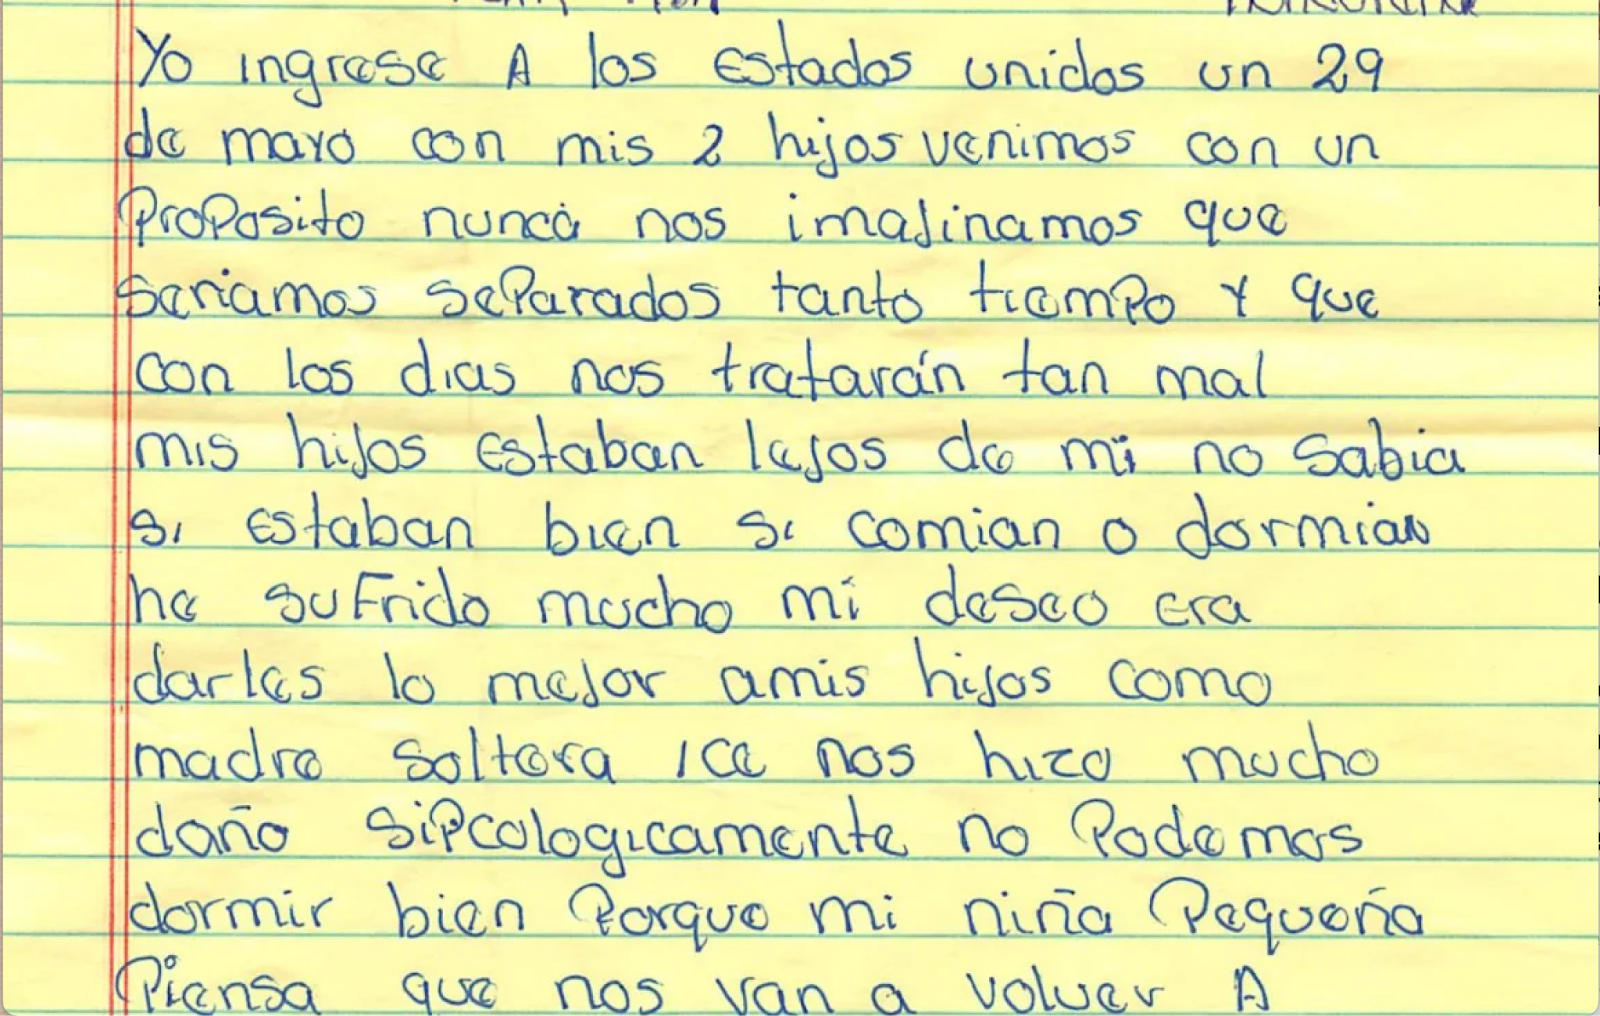 Yo ingrese A los Estados unidos un 29
de mayo con mis 2 hijos venimos con un
Proposito nunca nos imajinamos que
seriamos separados tanto tiempo y que
con los dias nos tratarán tan mal
mis hijos Estaban lejos de mi no sabia
si Estaban bien si comian o dormian
he suFrido mucho mi deseo Era
darles lo mejor amis hijos como
madre soltera ICE nos hizo mucho
daño sipcologicamente no Podemos
dormir bien Porque mi niña Pequeña
Piensa que nos van a volver A